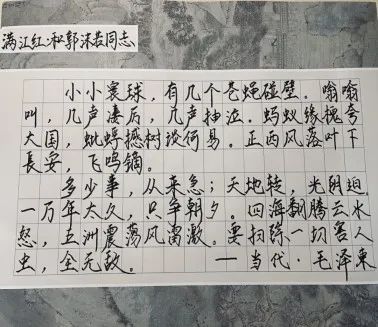 满江红·和郭沫若同志
小小寰球，有几个苍蝇碰壁。嗡嗡
叫，几声凄厉，几声抽泣。蚂蚁缘槐夸
大国，蚍蜉撼树谈何易。正西风落叶下
長安，飞鸣镝。
多少事，从来急；天地转，光阴迫。
一万年太久，只争朝夕。四海翻腾云水
怒，五洲震荡风雷激。要扫除一切害人
虫，全无敌。——当代·毛泽東